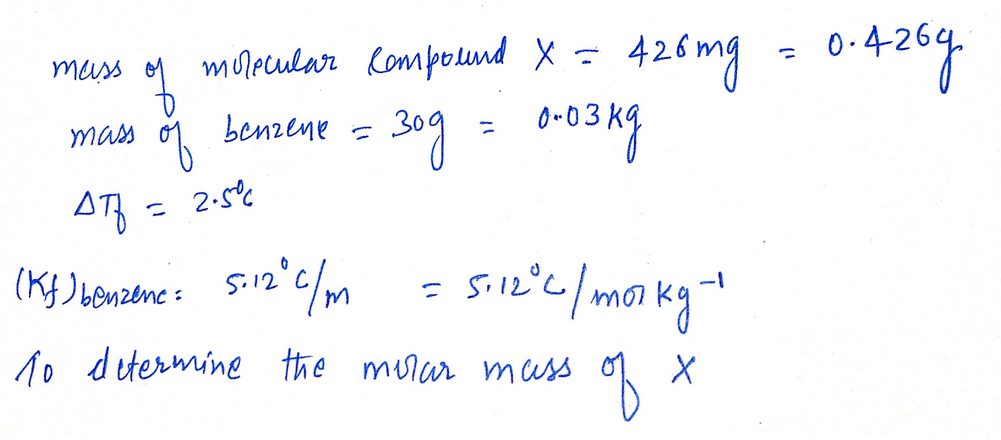 mass of molecular compound X = 426 mg = 0.426g
mass of benzene = 30g = 0.03 kg
ΔTf = 2.5°C
(Kf)benzene = 5.12°C/m = 5.12°C/mol kg⁻¹
To determine the molar mass of X